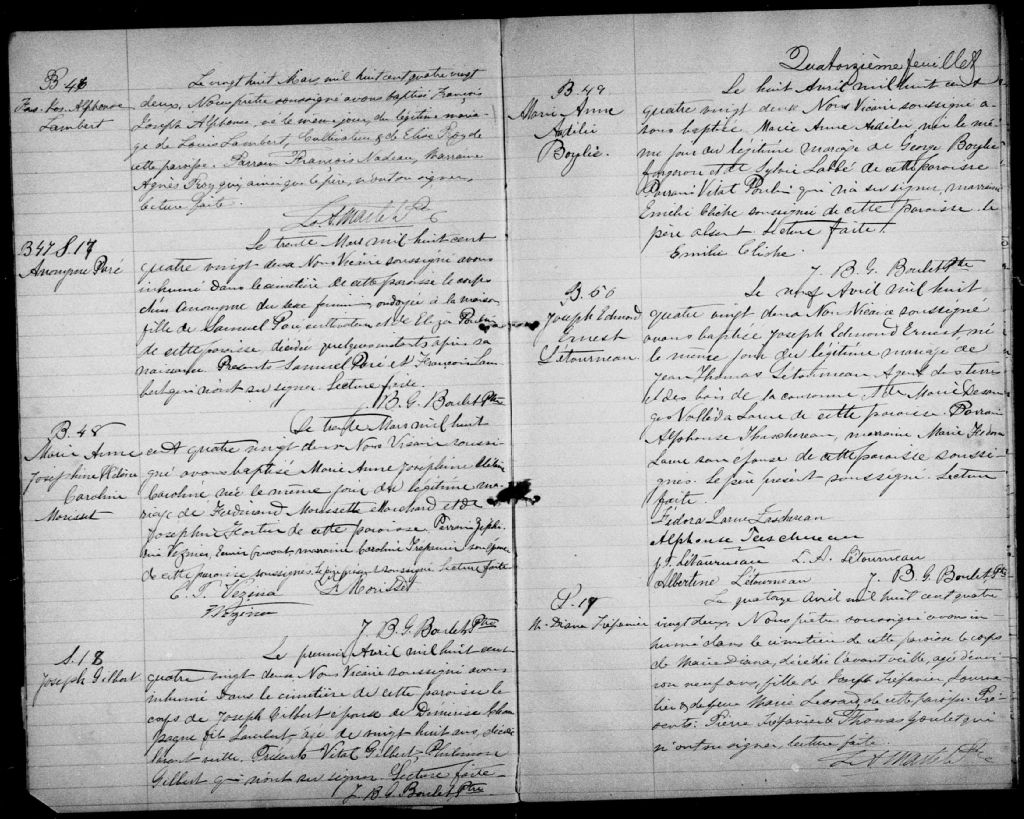 B 46
Frs. Jos. Alphonse
Lambert
Le vingt huit Mars mil huit cent quatre vingt
deux, Nous prêtre soussigné avons baptisé François
Joseph Alphonse, né le même jour, du légitime maria-
ge de Louis Lambert, Cultivateur & de Elise Roy de
cette paroisse. Parrain François Nadeau, Marraine
Agnès Roy qui ainsi que le père, n'ont su signer,
lecture faite.
B 47 S. 17
Anonyme Paré
Le trente Mars mil huit cent
quatre vingt deux Nous Vicaire soussigné avons
inhumé dans le cimetière de cette paroisse le corps
d'un anonyme du sexe féminin ondoyée à la maison
fille de Samuel Paré cultivateur et de Eliza Poulin
de cette paroisse, décédé quelques instants après sa
naissance. Présents Samuel Paré et François Lam
bert qui n'ont su signer. Lecture faite.
B. G. Boulet Ptre
B. 48
Marie Anne
Josephine
Caroline
Morisset
Le trente Mars mil huit
cent quatre vingt deux Nous Vicaire soussi-
gné avons baptisé Marie Anne Josephine
Caroline née le même jour du légitime ma-
riage de Ferdinand Morissette Marchand et de
Josephine Fortier de cette paroisse. Parrain
Vezina, marraine Caroline Trépanier son épouse
de cette paroisse soussignés. Le père présent soussigné. Lecture faite
C. T. Vezina F. Morisset
Vezina
J. B. G. Boulet Ptre
S. 18
Joseph Gilbert
Le premier Avril mil huit cent
quatre vingt deux Nous Vicaire soussigné avons
inhumé dans le cimetière de cette paroisse le
corps de Joseph Gilbert époux de Démerise Cham
pagne dit Lambert agé de vingt huit ans, décédé
l'avant veille. Présents Vital Gilbert, Philémon
Gilbert qui n'ont su signer. Lecture faite.
J. B. G. Boulet Ptre
Quatorzième feuillet
B. 49
Marie Anne
Boylie.
Le huit Avril mil huit cent
quatre vingt deux Nous Vicaire soussigné a-
vons baptisé Marie Anne née le mê-
me jour du légitime mariage de George Boylie
forgeron et de Sylvie Labbé de cette paroisse
Parrain Vital Poulin qui n'a su signer, marraine
Emilie Cliche soussignée de cette paroisse. le
père absent. Lecture faite.
Emilie Cliche
J. B. G. Boulet Ptre
B. 50
Joseph Edmond
Ernest
Létourneau.
Le neuf Avril mil huit
quatre vingt deux Nous Vicaire soussigné
avons baptisé Joseph Edmond Ernest, né
le même jour du légitime mariage de
Jean Thomas Létourneau Agent des terres
et des bois de la couronne et de Marie
Larue de cette paroisse. Parrain
Alphonse Taschereau, marraine Marie Fedora
Larue son épouse de cette paroisse soussi-
gnés. Le père présent soussigné. Lecture
faite.
Fédora Larue Taschereau
Alphonse Taschereau
J. T. Létourneau L. A. Létourneau
Albertine Létourneau J. B. G. Boulet Ptre
S. 19
M. Diana Trépanier
Le quatorze Avril mil huit cent quatre
vingt deux, Nous prêtre soussigné avons in
humé dans le cimetière de cette paroisse le corps
de Marie Diana, décédée l'avant veille, agée d'envi
ron neuf ans, fille de Joseph Trépanier, Journa
lier & de feue Marie Lessard, de cette paroisse. Pré-
sents: Pierre Trépanier & Thomas Goulet qui
n'ont su signer lecture faite.